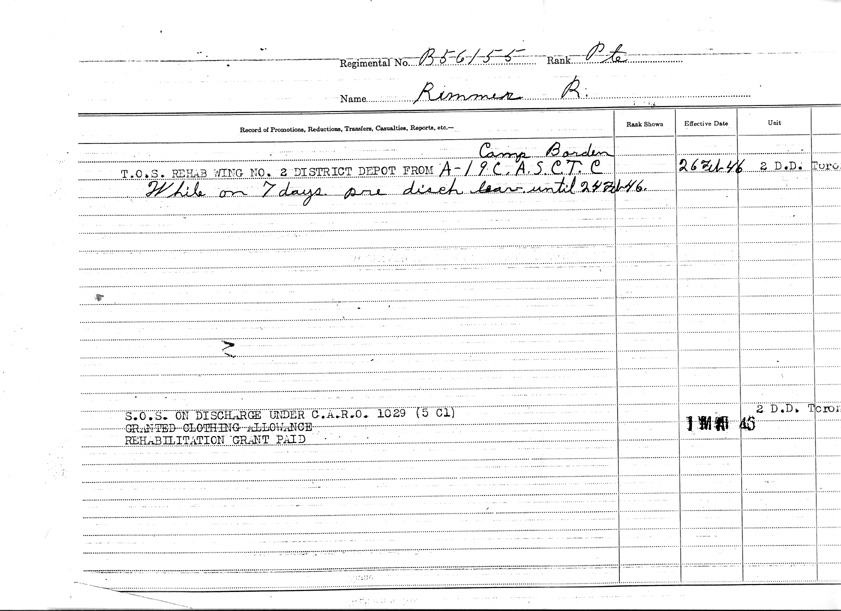 Regimental No. B56155 Rank Pte
Name Rimmer R.
Record of Promotions, Reductions, Transfers, Casualties, Reports, etc.— Rank Shown Effective Date Unit
Camp Borden
T.O.S. REHAB WING NO. 2 DISTRICT DEPOT FROM A-19 C.A.S.C.T.C 26 Feb 46 2 D.D. Toro
While on 7 days pre disch leave until 24 Feb 46.
S.O.S. ON DISCHARGE UNDER C.A.R.O. 1029 (5 Cl) 2 D.D. Toron
GRANTED CLOTHING ALLOWANCE 1
REHABILITATION GRANT PAID